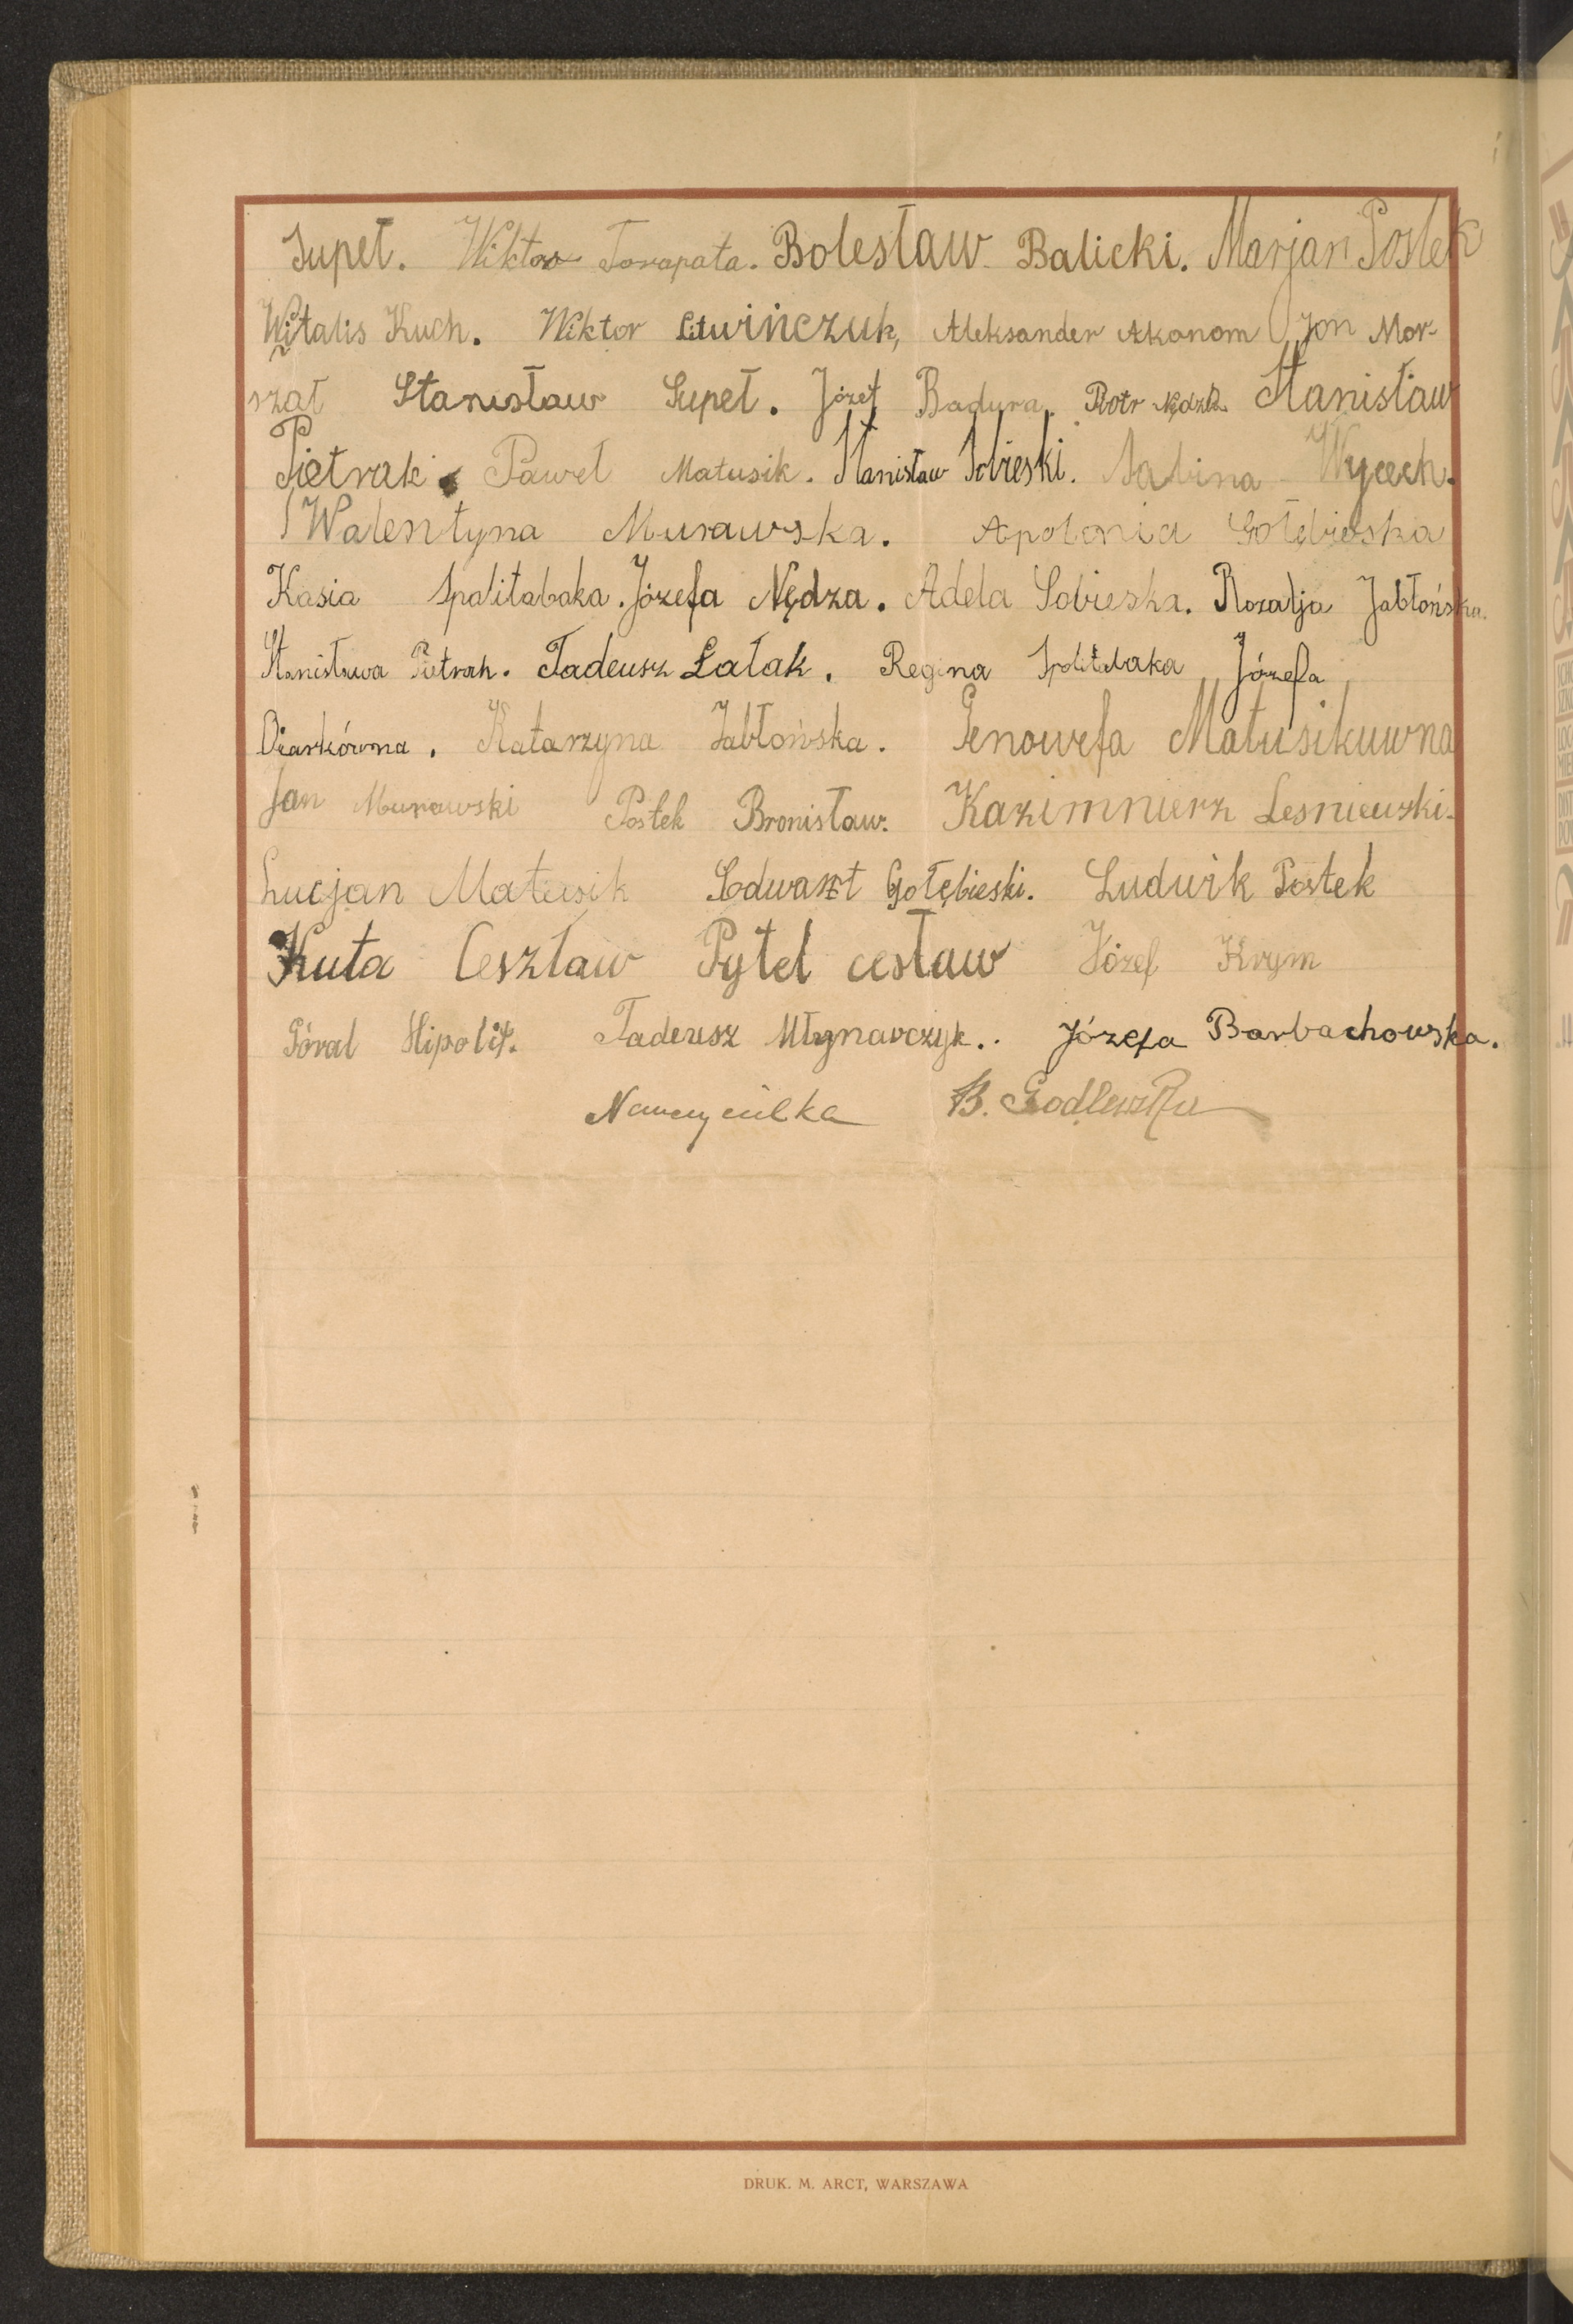 Supeł. Wiktor Torapata. Bolesław Balicki. Marjan Postek
Witalis Kuch. Wiktor Litwińczuk, Aleksander Akonom Jon Mor-
szał Stanisław Supeł. Józef Badura. Piotr Nędza Stanisław
Pietrak. Paweł Matusik. Stanisław Sobieski. Sabina Wycech.
Walentyna Murawska. Apolonia Gołębieska
Kasia Spalitabaka. Józefa Nędza. Adela Sobieska. Rozalja Jabłońska.
Stanisława Pietrak. Tadeusz Łalak. Regina Spalitabaka Józefa
Katarzyna Jabłońska. Genowefa Matusikuwna
Jan Murawski Postek Bronisław. Kazimnierz Lesniewski.
Lucjan Matusik Edwart Gołębieski. Ludwik Postek
Kuta Ceszław Pytel cesław Józef Krym
Góral Hipolit. Tadeusz Młynarczyk.. Józefa Barbachowska.
Nauczycielka B. Godlewska
DRUK. M. ARCT, WARSZAWA